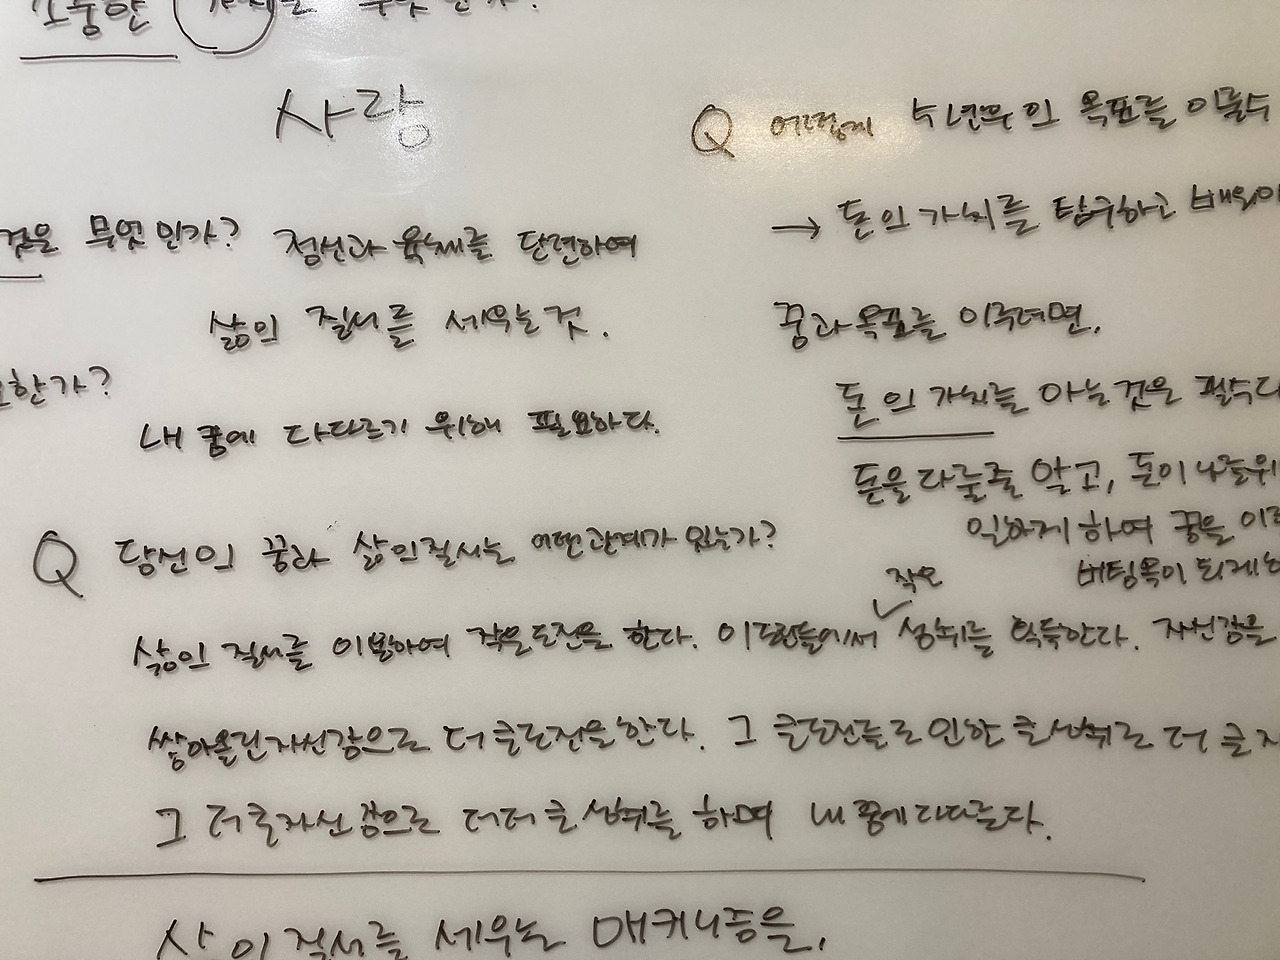 소중한 가치는 무엇인가?
사랑
것은 무엇인가? 정신과 육체를 단련하여
삶의 질서를 세우는것.
한가?
내 꿈에 다다르기 위해 필요하다.
Q 당신의 꿈과 삶의질서는 어떤관계가 있는가?
삶의 질서를 이용하여 작은도전을 한다. 이도전들에서 작은 성취를 획득한다. 자신감을
쌓아올린자신감으로 더큰도전을한다. 그 큰도전들로인한 큰성취로 더 큰
그 더큰자신감으로 더더큰성취를 하며 내꿈에다다른다.
삶의질서를 세우는 매커니즘을,
Q 어떻게 수년후의 목표를 이룰수
→ 돈의 가치를 탐구하고 배워야
꿈과목표를 이루려면,
돈의 가치를 아는것은 필수다
돈을다룰줄 알고, 돈이나를위
일하게 하여 꿈을
버팀목이 되게